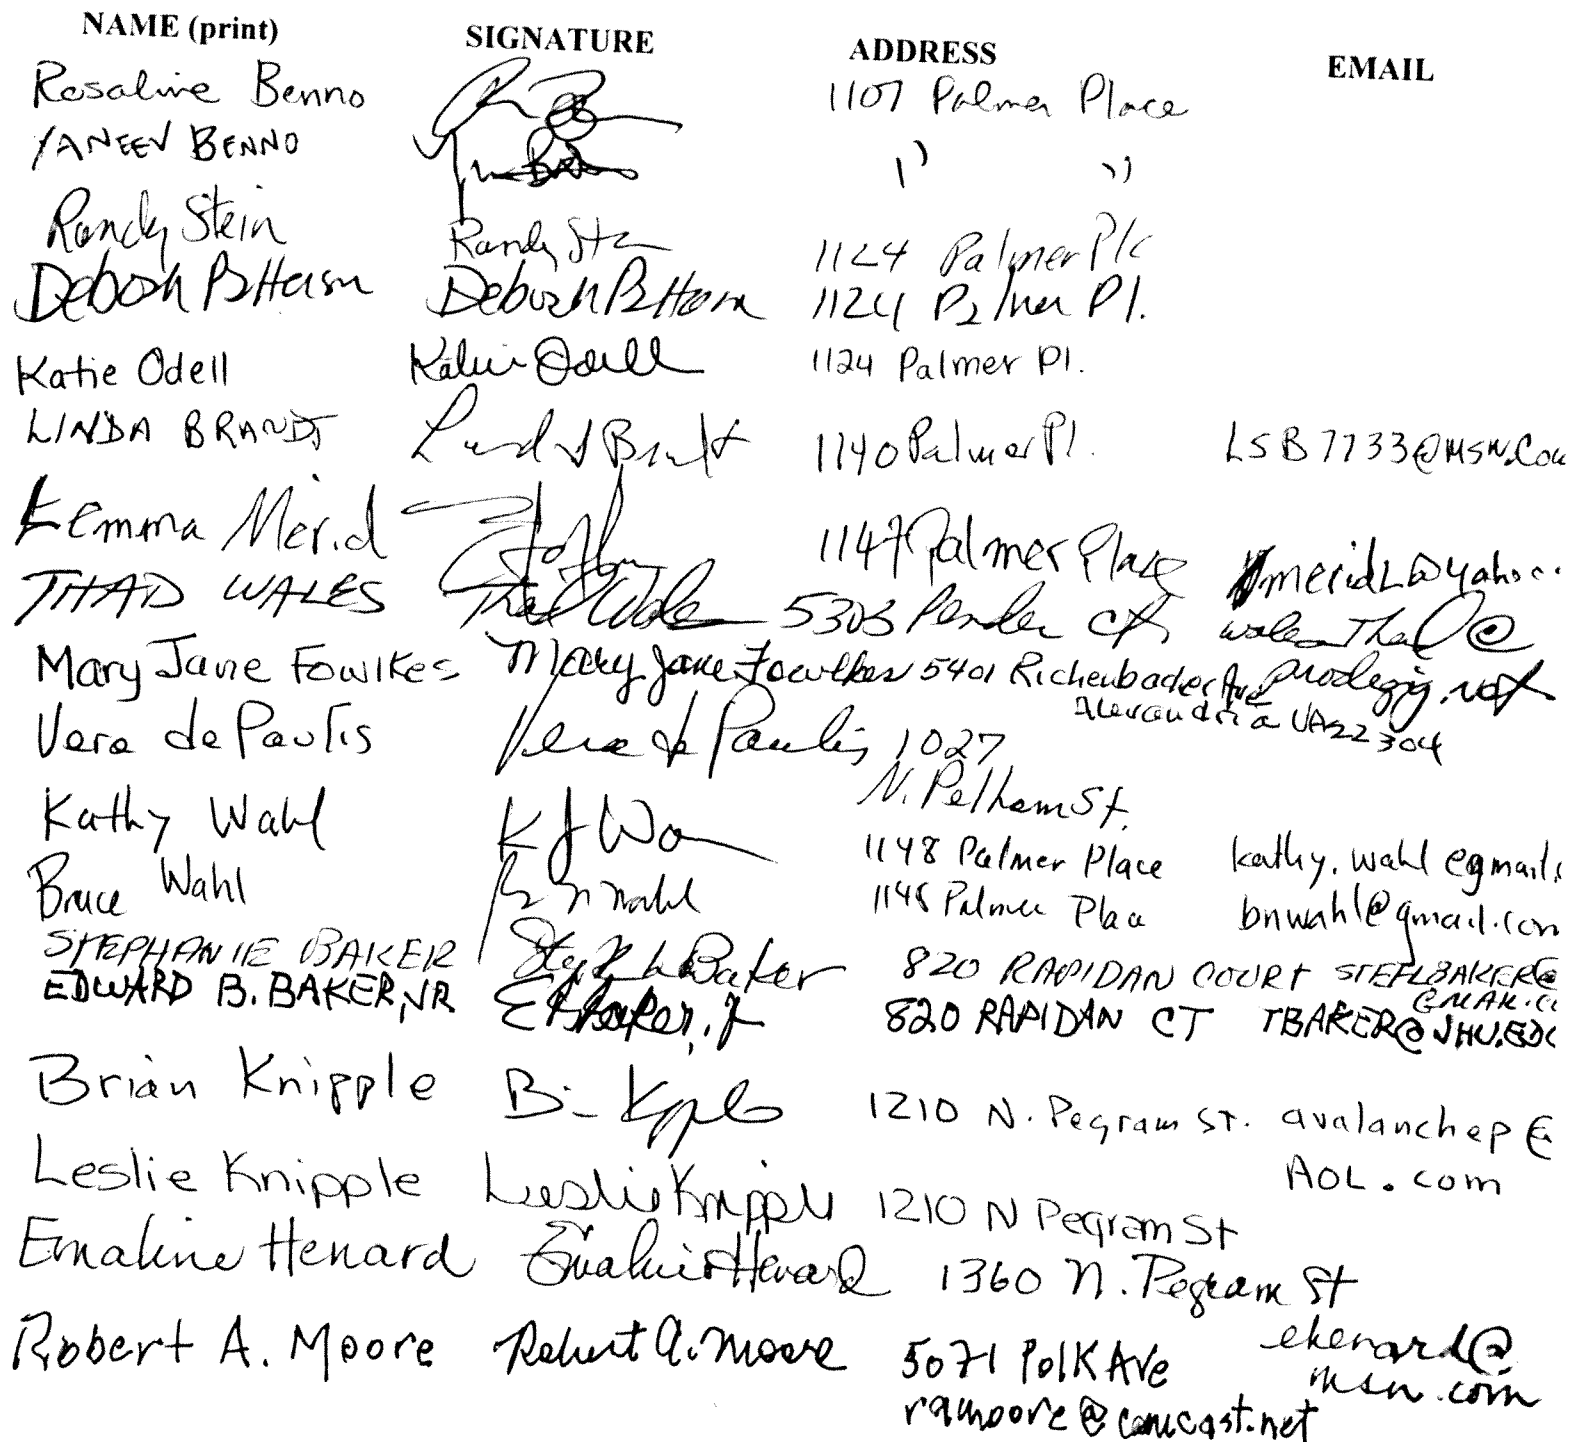 NAME (print) SIGNATURE ADDRESS EMAIL
Rosaline Benno 1107 Palmer Place
YANEEV BENNO " "
Randy Stein Randy Stein 1124 Palmer Plc
Deborah Patterson Deborah Patterson 1124 Palmer Pl.
Katie Odell Katie Odell 1124 Palmer Pl.
LINDA BRANDT Linda Brandt 1140 Palmer Pl. LSB7733@MSN.Com
Kemma Merid 1147 Palmer Place meridL@yahoo.
THAD WALES Thad Wales 5303 Pender Ct, walesThad@
prodigy.net
Mary Jane Fowlkes Mary Jane Fowlkes 5401 Richenbacher Ave
Alexandria VA 22304
Vera de Paulis Vera de Paulis 1027
N. Pelham St.
Kathy Wahl K J Wa 1148 Palmer Place kathy.wahl@gmail.
Bruce Wahl B N Wahl 1148 Palmer Place bnwahl@gmail.com
STEPHANIE BAKER Baker 820 RAPIDAN COURT STEFLBAKER@
GMAIL.C
EDWARD B. BAKER, JR E B Baker, Jr 820 RAPIDAN CT TBAKER@JHU.EDU
Brian Knipple 1210 N. Pegram St. avalanchep@
AOL.com
Leslie Knipple Leslie Knipple 1210 N Pegram St
Emaline Henard Emaline Henard 1360 N. Pegram St
ehenard@
msn.com
Robert A. Moore Robert A. Moore 5071 Polk Ave
ramoore@comcast.net